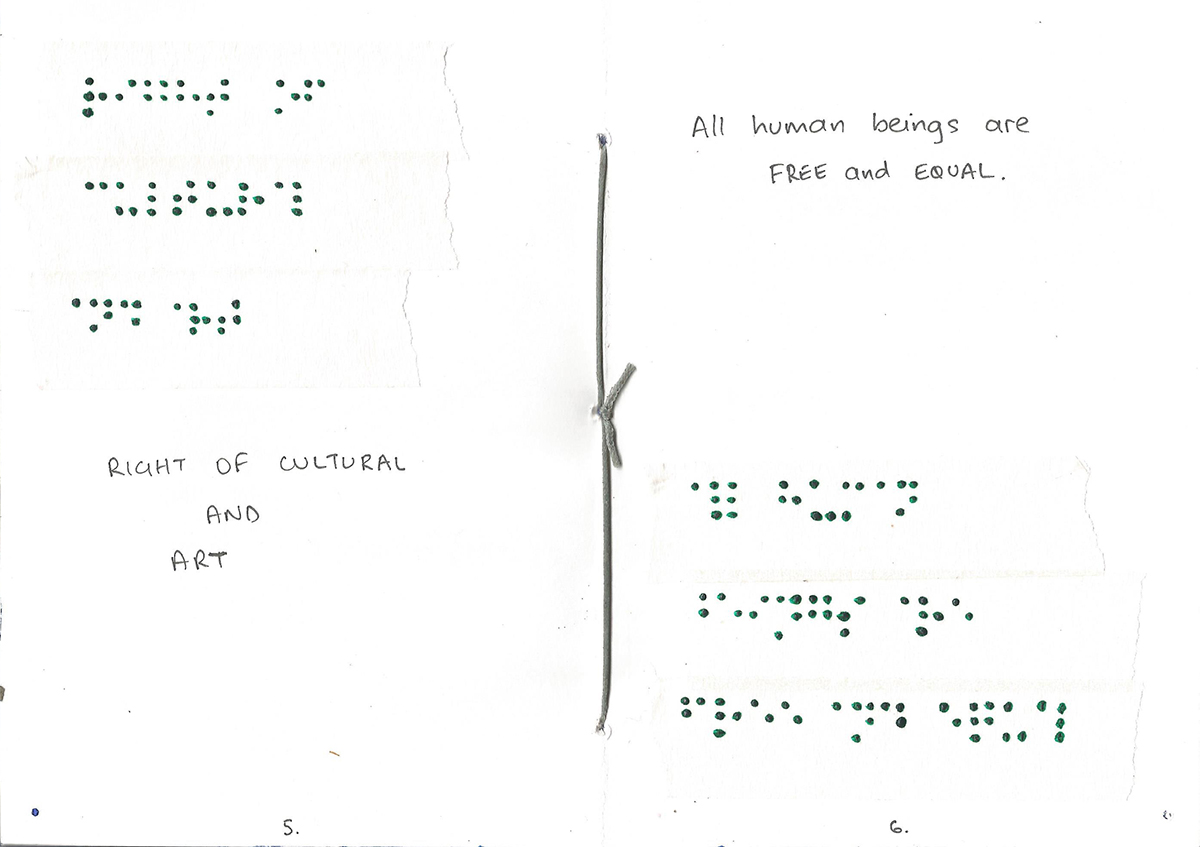 ⠗⠊⠛⠓⠞ ⠕⠋
⠉⠥⠇⠞⠥⠗⠁⠇
⠁⠝⠙ ⠁⠗⠞
RIGHT OF CULTURAL
AND
ART
5.
All human beings are
FREE and EQUAL.
⠁⠇⠇ ⠓⠥⠍⠁⠝
⠃⠑⠊⠝⠛⠎ ⠁⠗⠑
⠋⠗⠑⠑ ⠁⠝⠙ ⠑⠟⠥⠁⠇
6.